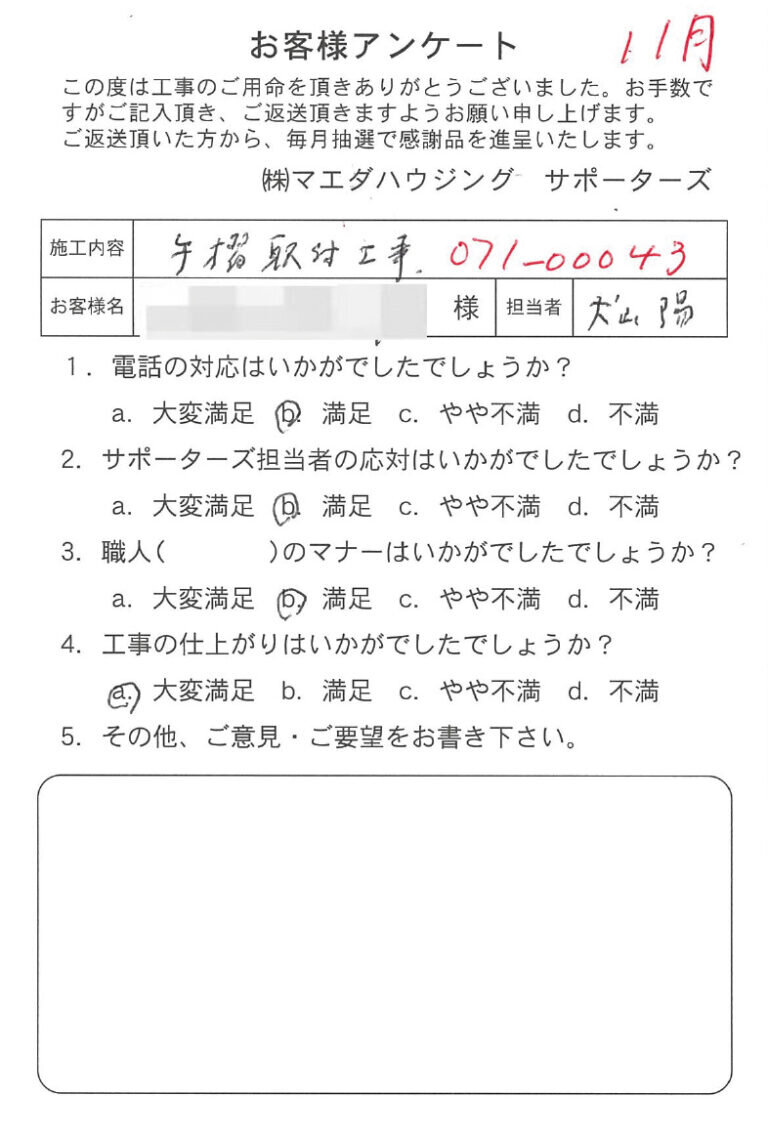 お客様アンケート
11月
この度は工事のご用命を頂きありがとうございました。お手数で
すがご記入頂き、ご返送頂きますようお願い申し上げます。
ご返送頂いた方から、毎月抽選で感謝品を進呈いたします。
㈱マエダハウジング　サポーターズ
施工内容 手摺取付工事. 071-00043
お客様名 様 担当者
1. 電話の対応はいかがでしたでしょうか?
a. 大変満足 b. 満足 c. やや不満 d. 不満
2. サポーターズ担当者の応対はいかがでしたでしょうか?
a. 大変満足 b. 満足 c. やや不満 d. 不満
3. 職人(　　　　)のマナーはいかがでしたでしょうか?
a. 大変満足 b. 満足 c. やや不満 d. 不満
4. 工事の仕上がりはいかがでしたでしょうか?
a. 大変満足 b. 満足 c. やや不満 d. 不満
5. その他、ご意見・ご要望をお書き下さい。